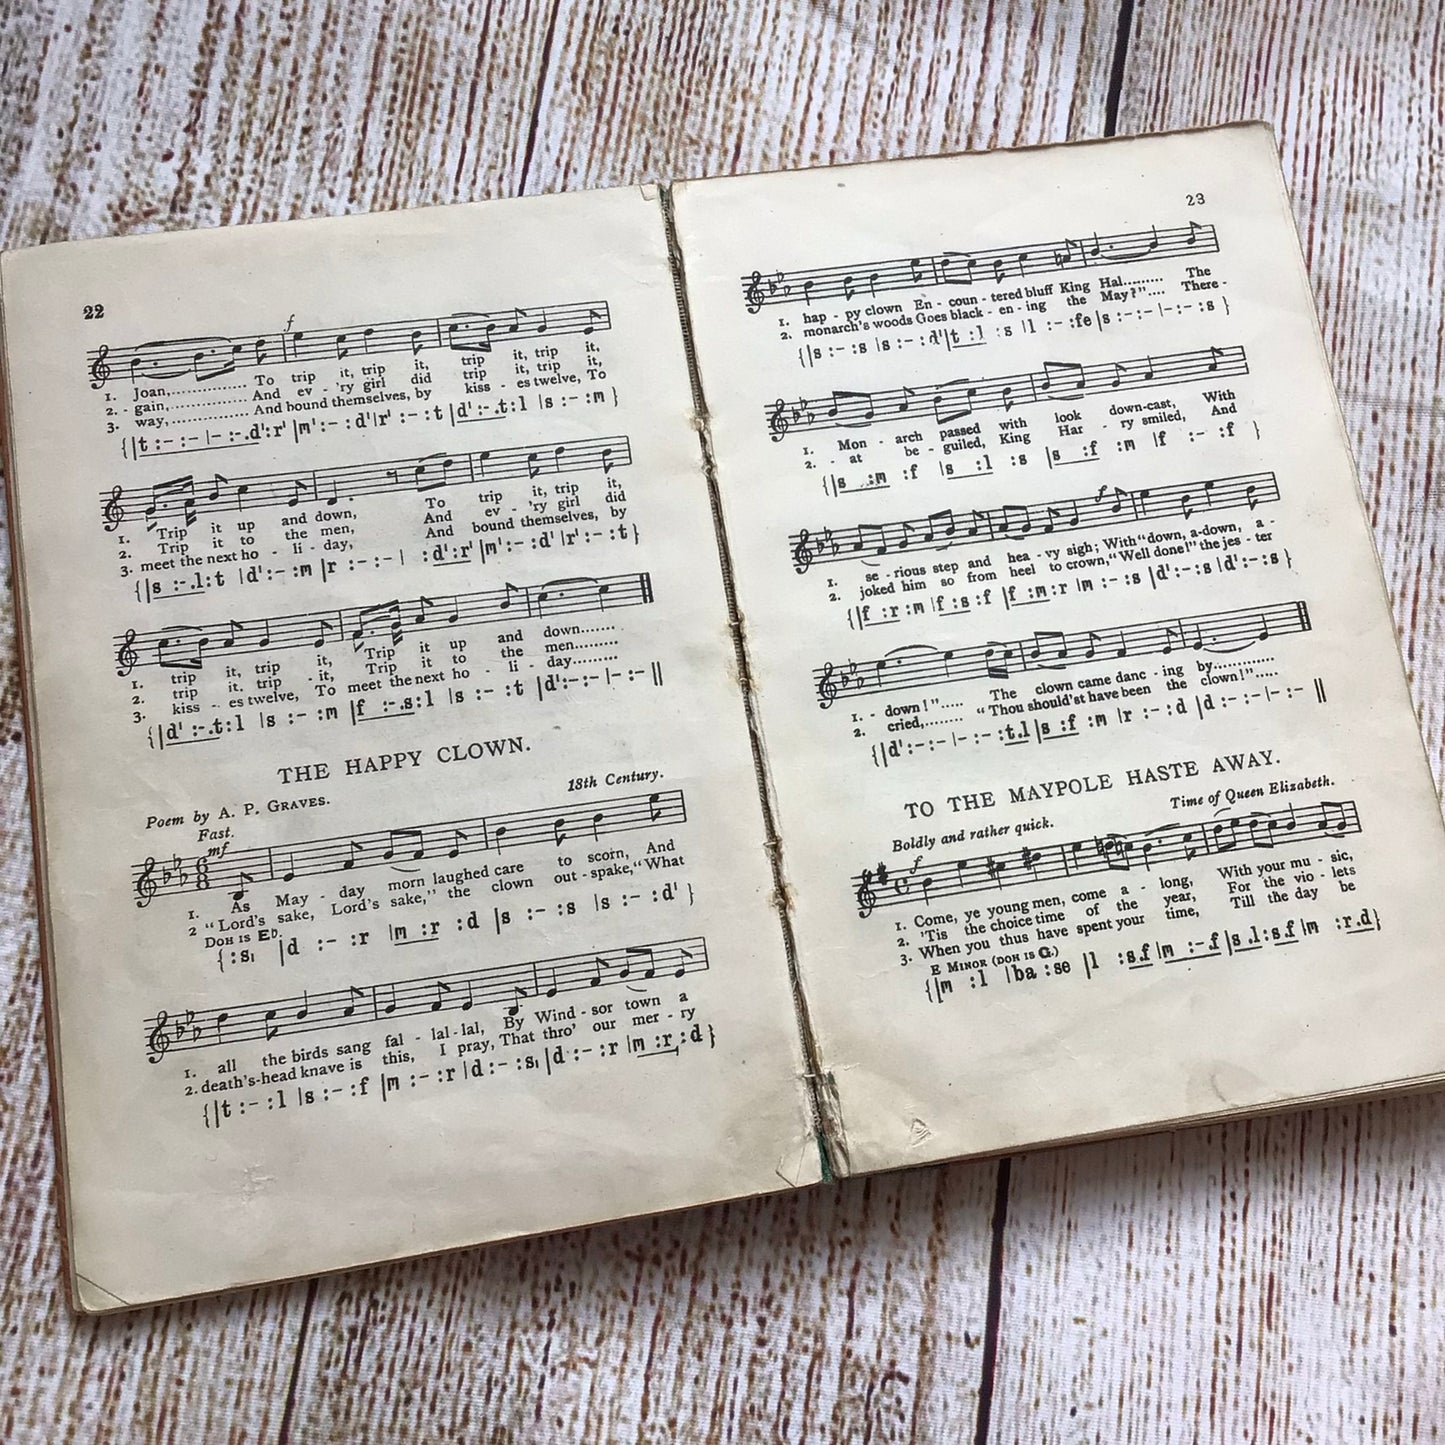 22
f
1. Joan,............... To trip it, trip it, trip it, trip it,
2. - gain,............... And ev - 'ry girl did trip it, trip it,
3. way,............... And bound themselves, by kiss - es twelve, To
{|t :- :- |- :-.d':r' |m':- :d'|r' :- :t |d':-.t:l |s :- :m }
1. Trip it up and down, To trip it, trip it,
2. Trip it to the men, And ev - 'ry girl did
3. meet the next ho - li - day, And bound themselves, by
{|s :-.l:t |d':- :m |r :- :- | :d':r' |m':- :d'|r':- :t }
1. trip it, trip it, Trip it up and down.......
2. trip it. trip - it, Trip it to the men.........
3. kiss - es twelve, To meet the next ho - li - day.........
{|d' :-.t:l |s :- :m |f :-.s:l |s :- :t |d':-:- |- :- ||
THE HAPPY CLOWN.
18th Century.
Poem by A. P. GRAVES.
Fast.
mf
1. As May - day morn laughed care to scorn, And
2 "Lord's sake, Lord's sake," the clown out - spake, "What
DOH IS E♭.
{ :s, |d :- :r |m :r :d |s :- :s |s :- :d' }
1. all the birds sang fal - lal - lal, By Wind - sor town a
2. death's-head knave is this, I pray, That thro' our mer - ry
{|t :- :l |s :- :f |m :- :r |d :- :s, |d :- :r |m :r :d }
23
1. hap - py clown En - coun - tered bluff King Hal.......... The
2. monarch's woods Goes black - en - ing the May?".... There -
{|s :- :s |s :- :d'|t :l :s |l :- :fe |s :- :- |- :- :s }
1. Mon - arch passed with look down-cast, With
2. - at be - guiled, King Har - ry smiled, And
{|s :m :f |s :l :s |s :f :m |f :- :f }
f
1. se - rious step and hea - vy sigh; With "down, a-down, a -
2. joked him so from heel to crown, "Well done!" the jes - ter
{|f :r :m |f :s :f |f :m :r |m :- :s |d' :- :s |d' :- :s }
1. - down!"..... The clown came danc - ing by.............
2. cried,........ "Thou should'st have been the clown!".....
{|d':-:- |- :- :t.l |s :f :m |r :- :d |d :- :- |- :- ||
TO THE MAYPOLE HASTE AWAY.
Time of Queen Elizabeth.
Boldly and rather quick.
f
1. Come, ye young men, come a - long, With your mu - sic,
2. 'Tis the choice time of the year, For the vio - lets
3. When you thus have spent your time, Till the day be
E MINOR (DOH IS G.)
{|m :l |ba :se |l :s.f |m :-.f |s.l:s.f |m :r.d}